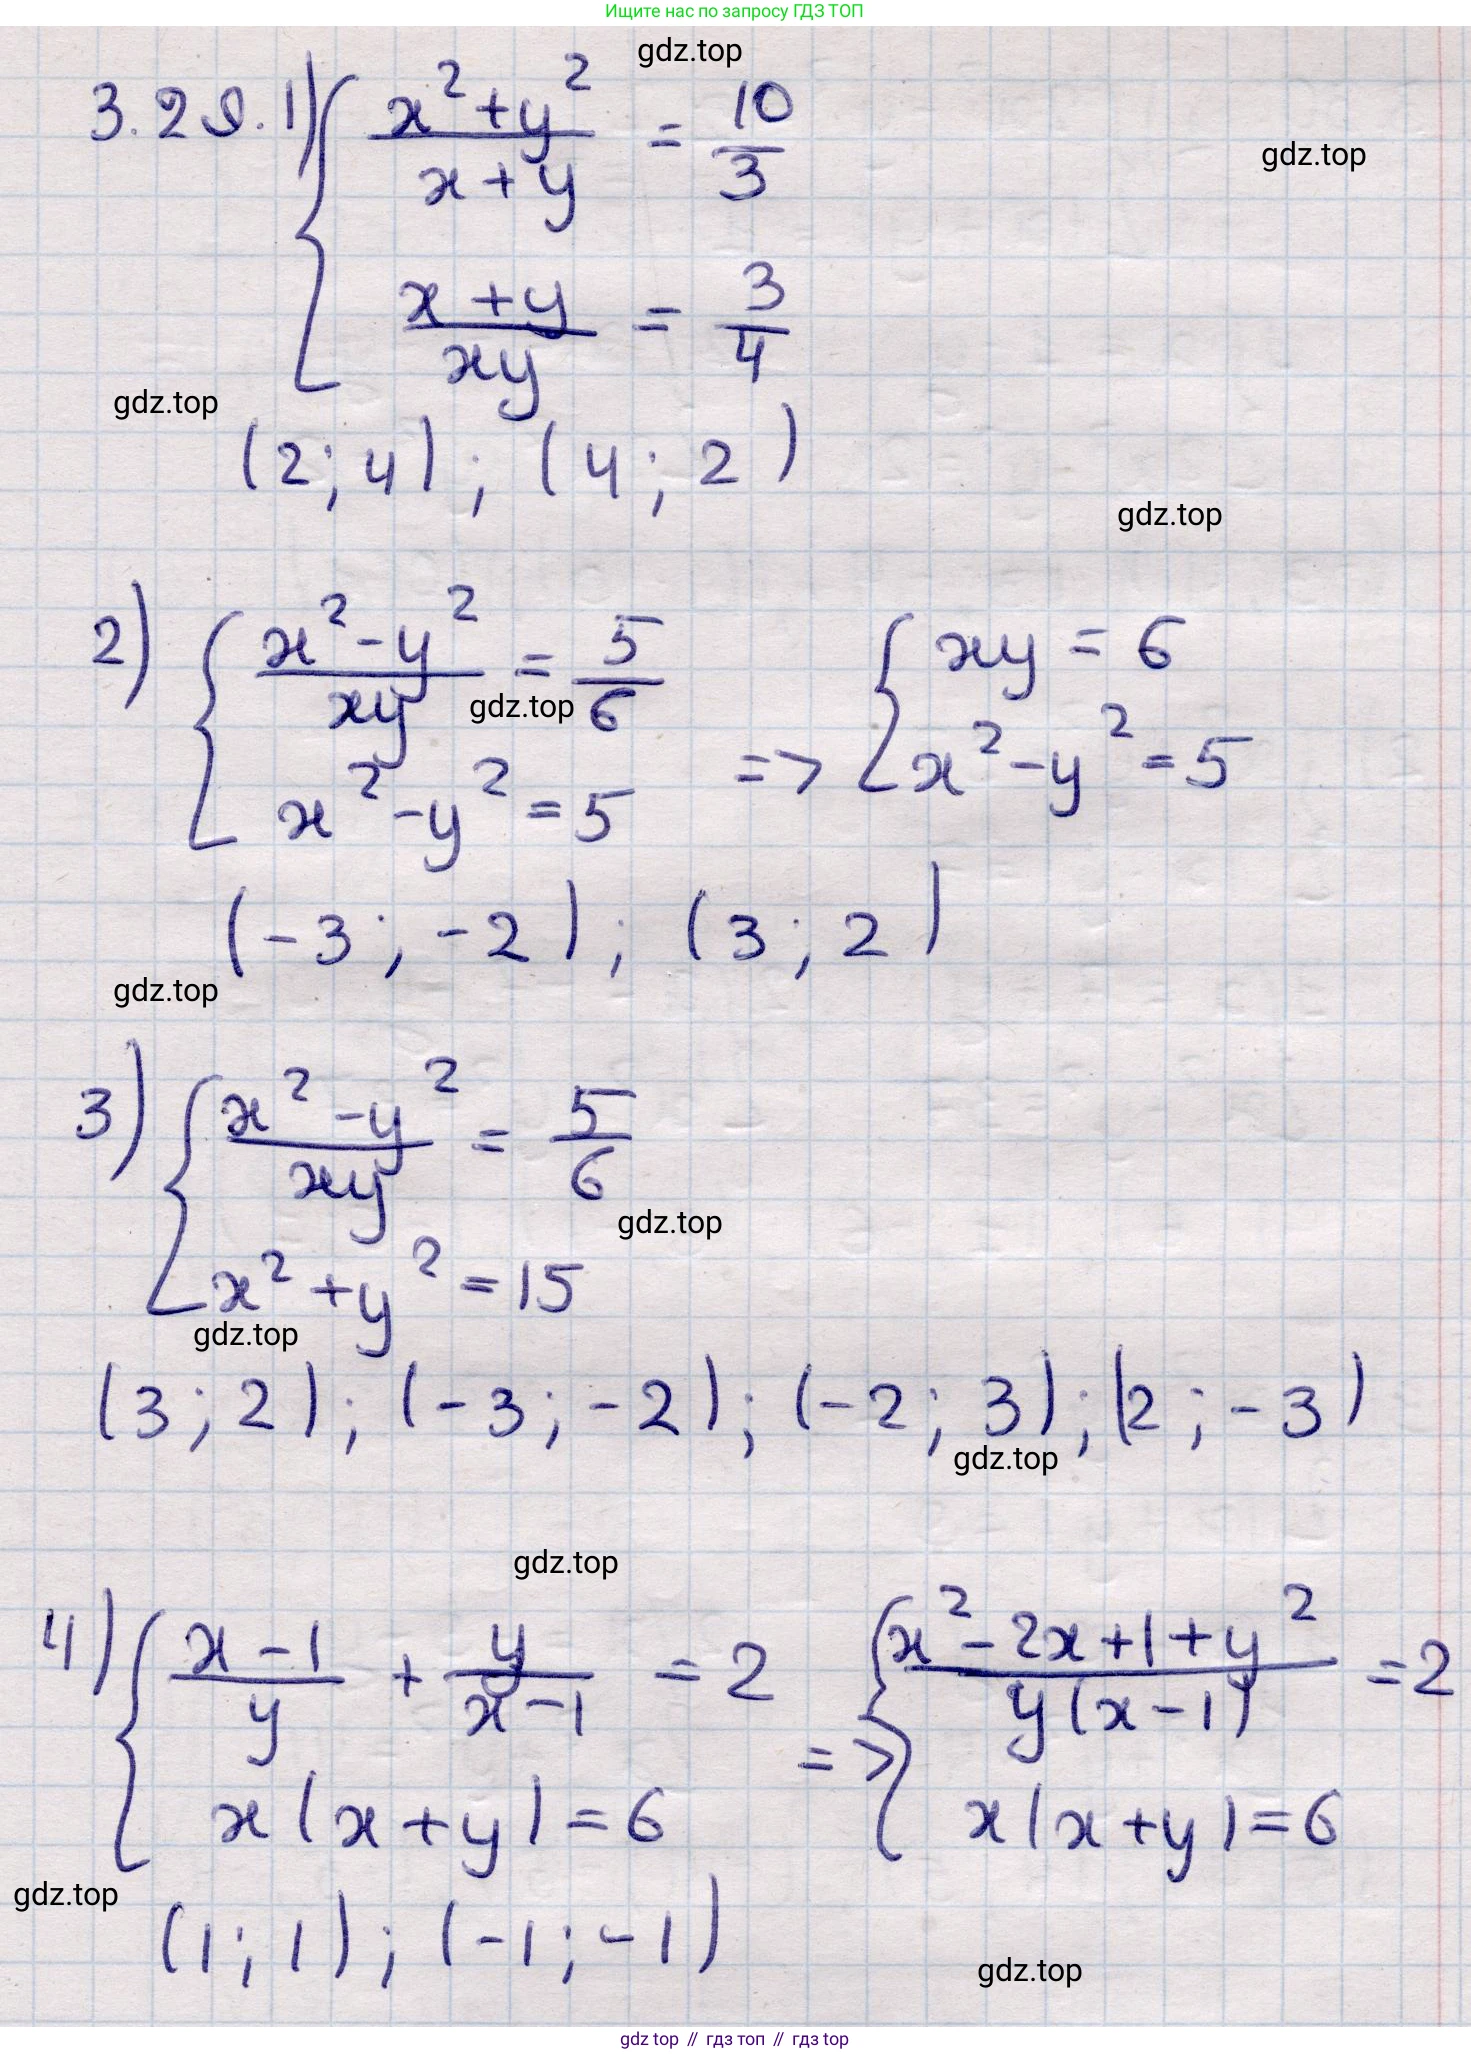 Ищите нас по запросу ГДЗ ТОП
gdz.top
3.29. 1) { (x² + y²)/(x + y) = 10/3
gdz.top
(x + y)/(xy) = 3/4
gdz.top
(2; 4); (4; 2)
gdz.top
2) { (x² - y²)/(xy) = 5/6
gdz.top
x² - y² = 5
=> { xy = 6
x² - y² = 5
(-3; -2); (3; 2)
gdz.top
3) { (x² - y²)/(xy) = 5/6
gdz.top
x² + y² = 15
gdz.top
(3; 2); (-3; -2); (-2; 3); (2; -3)
gdz.top
gdz.top
4) { (x - 1)/y + y/(x - 1) = 2
x(x + y) = 6
=> { (x² - 2x + 1 + y²)/(y(x - 1)) = 2
x(x + y) = 6
gdz.top
(1; 1); (-1; -1)
gdz.top
gdz top // гдз топ // gdz top